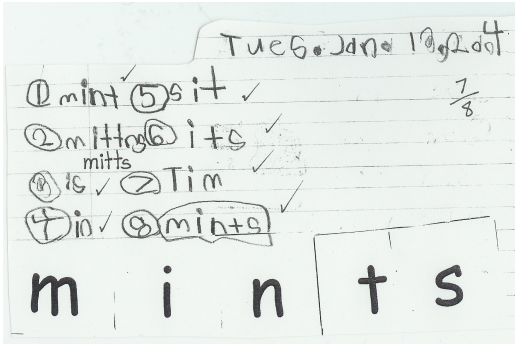 Tues. Jan. 13, 2004
① mint ✓ ⑤ sit ✓
7/8
② mittns ⑥ its ✓
mitts
③ is ✓ ⑦ Tim ✓
④ in ✓ ⑧ mints ✓
m i n t s